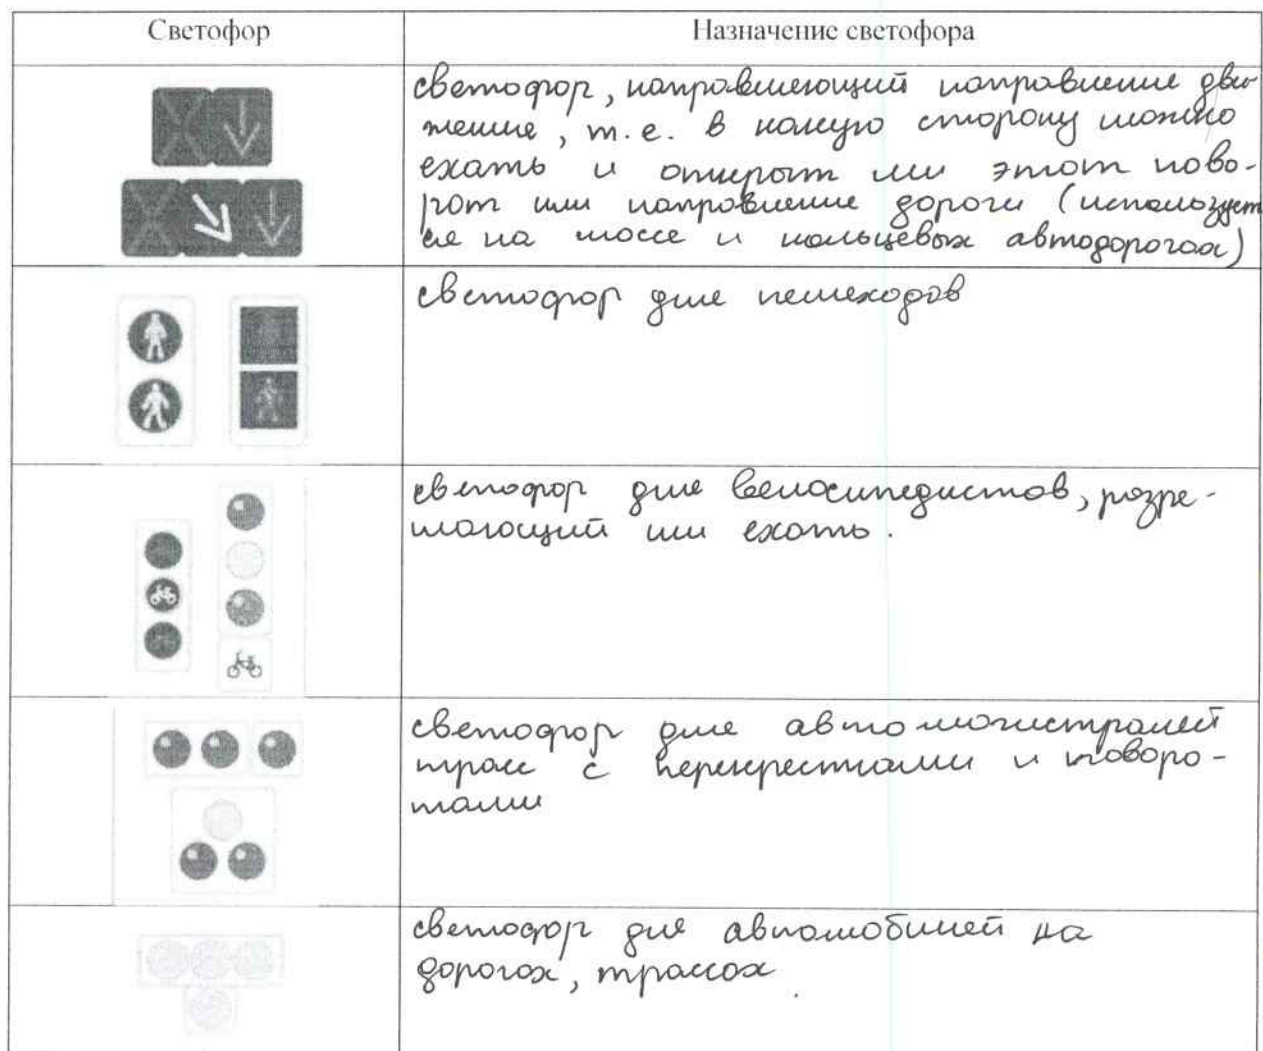 Светофор
Назначение светофора
светофор, направляющий направление дви-
жение, т.е. в какую сторону можно
ехать и открыт ли этот пово-
рот или направление дороги (использует
ся на шоссе и кольцевых автодорогах)
светофор для пешеходов
светофор для велосипедистов, разре-
шающий им ехать.
светофор для автомагистралей
трасс с перекрестками и поворо-
тами
светофор для автомобилей на
дорогах, трассах.